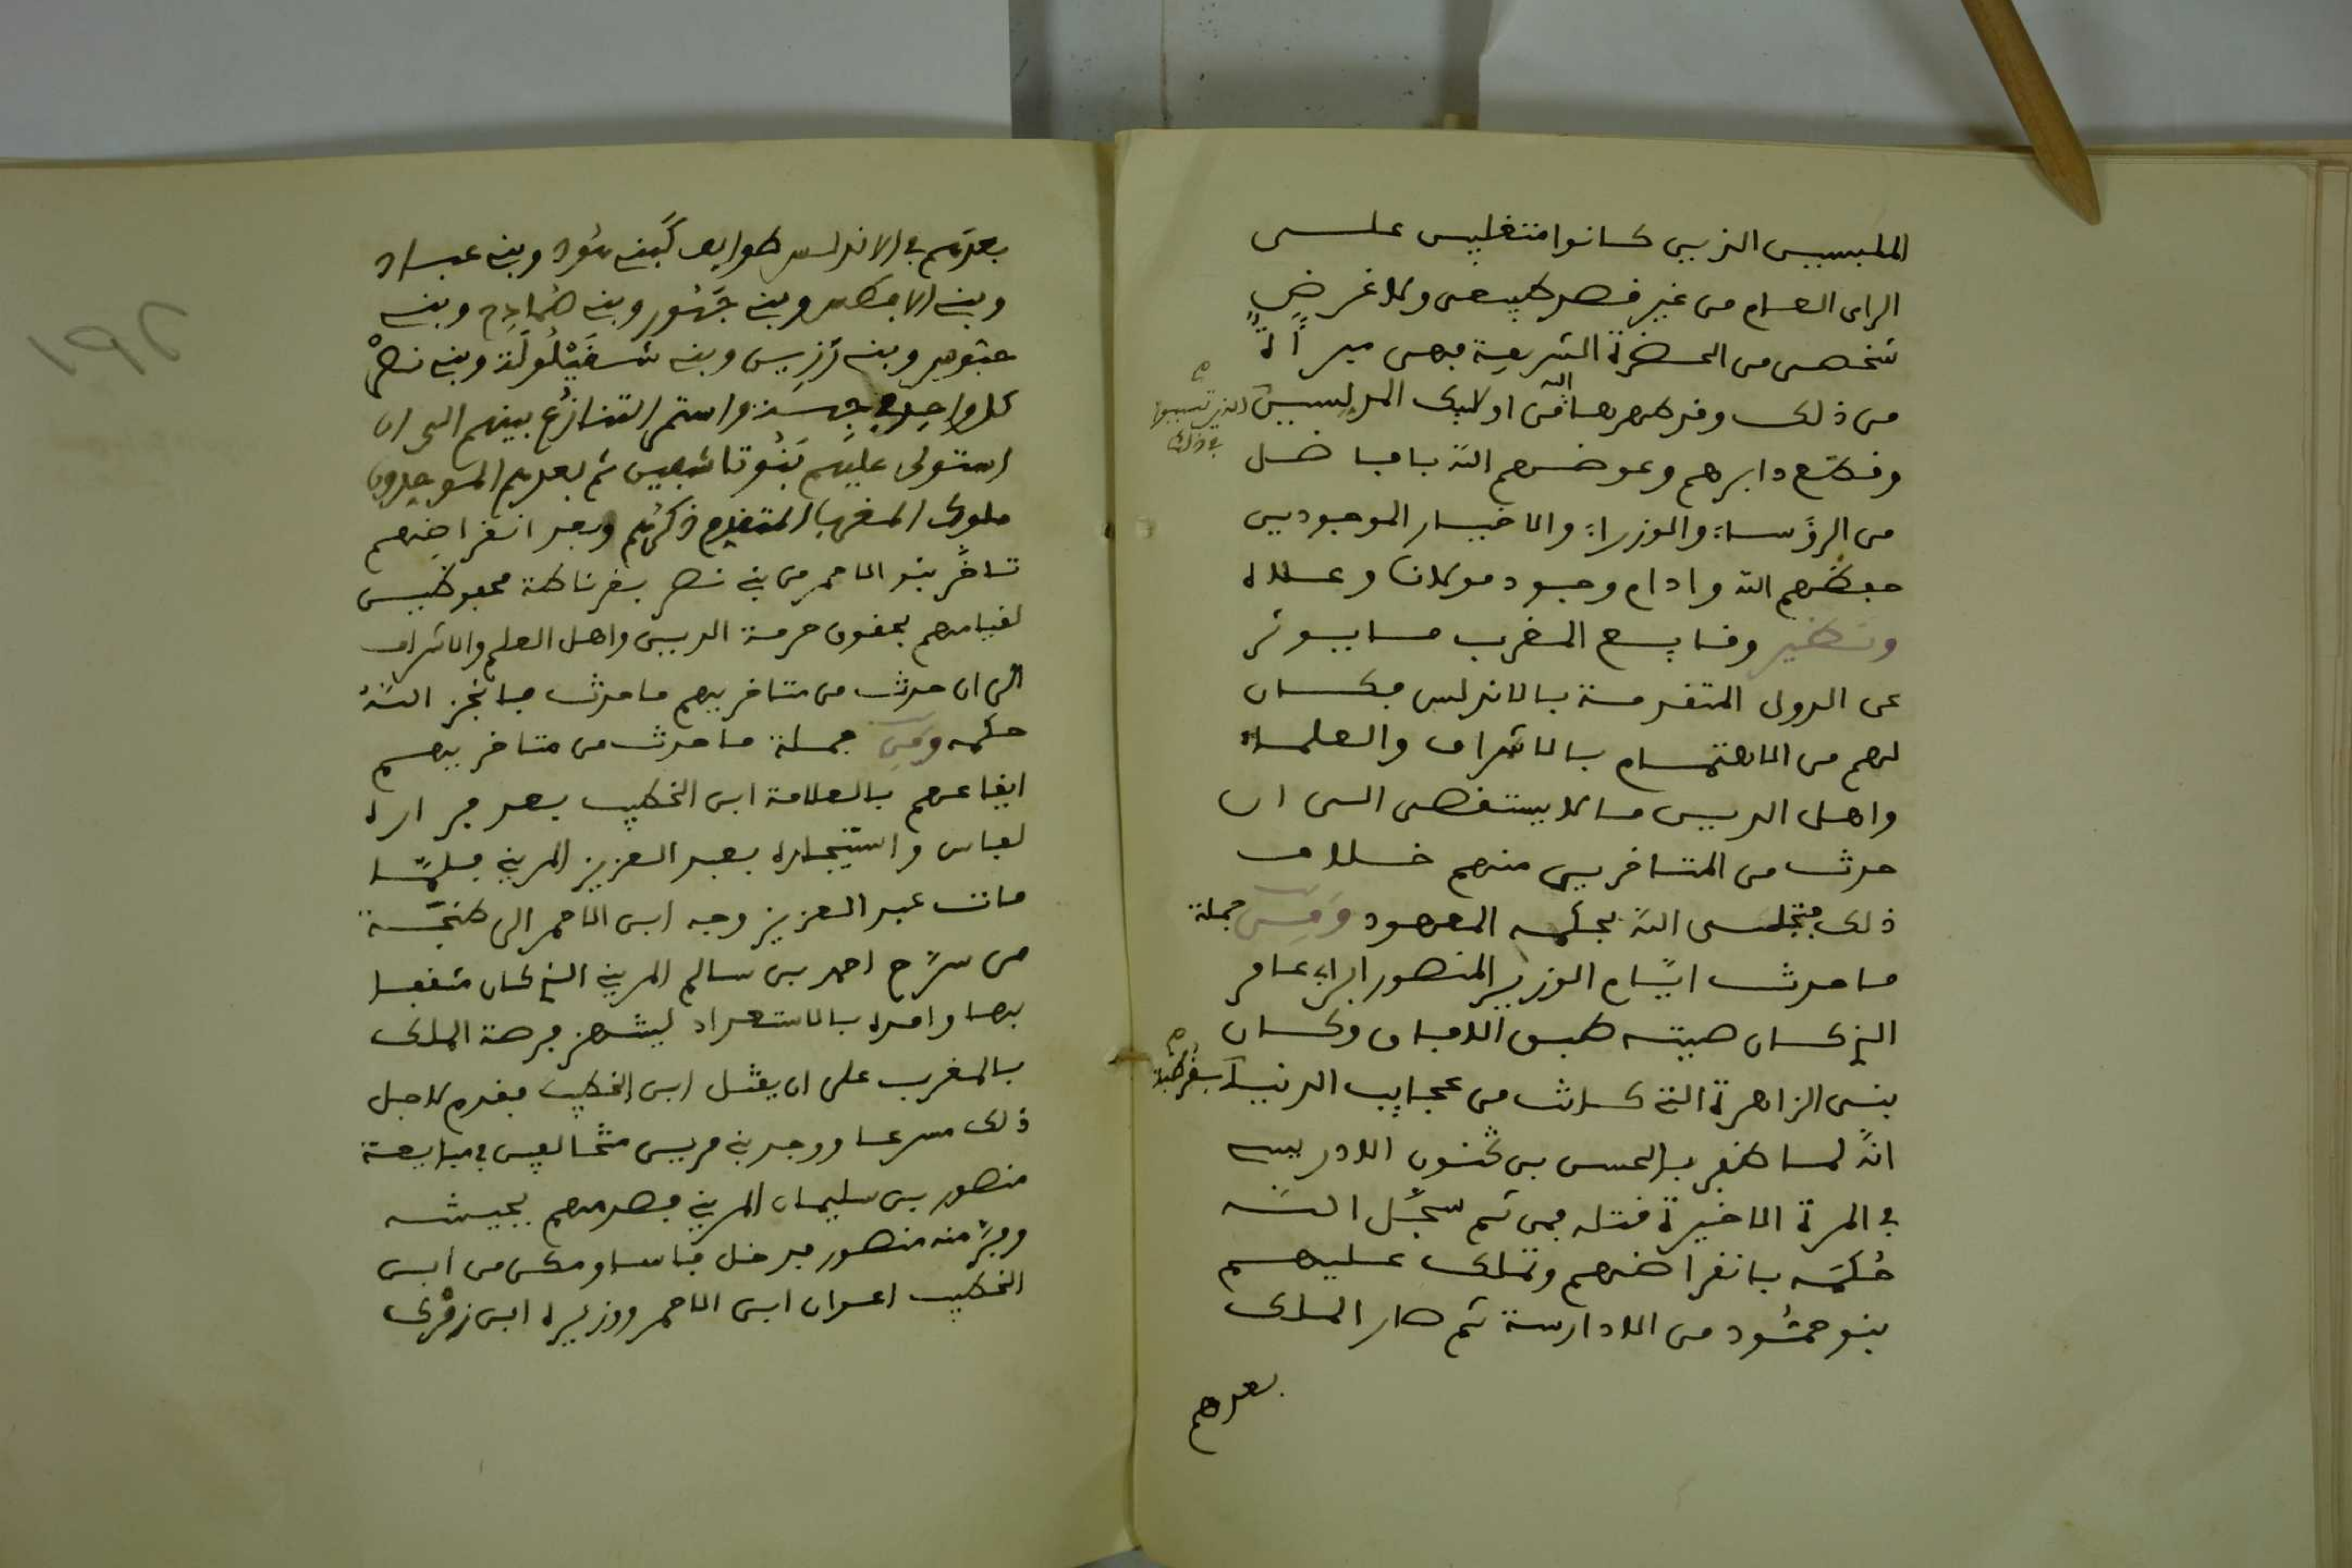 الملبسين الذين كانوا متغلبين على
الراى العام من غير قصد طبيعى ولا غرض
شخصى من الحضرة الشريفة فهى مبرأة
من ذلك وقد طهرها الله من اولئك المدلسين الذين تسببوا
في ذلك
وقطع دابرهم وعوضهم الله بافاضل
من الرؤساء والوزراء والاخيار الموجودين
حفظهم الله وادام وجود مولانا وعلاه
ونظير وقايع المغرب ما يوثر
عن الدول المتقدمة بالاندلس فكان
لهم من الاهتمام بالاشراف والعلماء
واهل الدين ما لا يستقصى الى ان
حدث من المتاخرين منهم خلاف
ذلك فتجلى الله بحلمه المعهود ومن جملة
ما حدث ايام الوزير المنصور ابن ابى عامر
الذى كان صيته طبق الافاق وكان
بنى الزاهرة التى كانت من عجايب الدنيا بقرطبة
انه لما ظفر بالحسن بن كنون الادريسى
في المرة الاخيرة قتله فمن ثم سجل الله
حكمه بانقراضهم وتملك عليهم
بنو حمود من الادارسة ثم صار الملك
بعدهم
بعدهم في الاندلس طوايف كبنى هود وبنى عباد
وبنى الافطس وبنى جهور وبنى صمادح وبنى
وبنى رزين وبنى شقيلولة وبنى نصر
كل واحد في جهة واستمر التنازع بينهم الى ان
استولى عليهم بنو تاشفين ثم بعدهم الموحدون
ملوك المغرب المتقدم ذكرهم وبعد انقراضهم
تاخر بنو الاحمر من بنى نصر بغرناطة محفوظين
لقيامهم بحقوق حرمة الدين واهل العلم والاشراف
الى ان حدث من متاخريهم ما حدث فانجز الله
حكمه ومن جملة ما حدث من متاخريهم
ايقاعهم بالعلامة ابن الخطيب بعد فراره
لفاس واستيجاره بعبد العزيز المرينى فلما
مات عبد العزيز وجه ابن الاحمر الى طنجة
من سرح احمد بن سالم المرينى الذى كان مثقفا
بها وامره بالاستعداد لينتهز فرصة الملك
بالمغرب على ان يقتل ابن الخطيب فقدم لاجل
ذلك مسرعا ووجد بنى مرين متخالفين في مبايعة
منصور بن سليمان المرينى فصدمهم بجيشه
وفر منه منصور فدخل فاسا ومكن من ابن
الخطيب اعوان ابن الاحمر ووزيره ابن زمرك